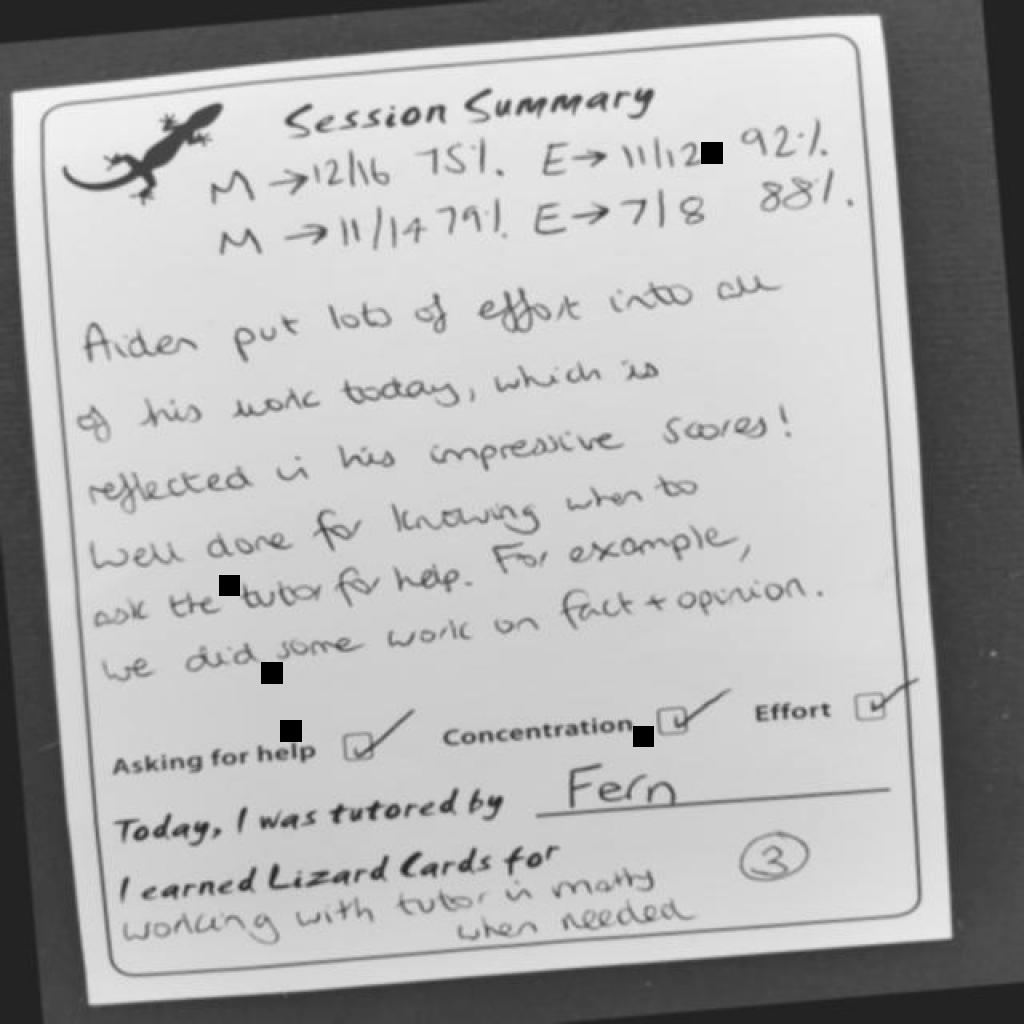 Session Summary
M → 12/16 75%. E → 11/12 92%.
M → 11/14 79%. E → 7/8 88%.
Aiden put lots of effort into all
of his work today, which is
reflected in his impressive scores!
Well done for knowing when to
ask the tutor for help. For example,
we did some work on fact + opinion.
Asking for help Concentration Effort
Today, I was tutored by Fern
I earned Lizard Cards for 3
working with tutor in maths
when needed